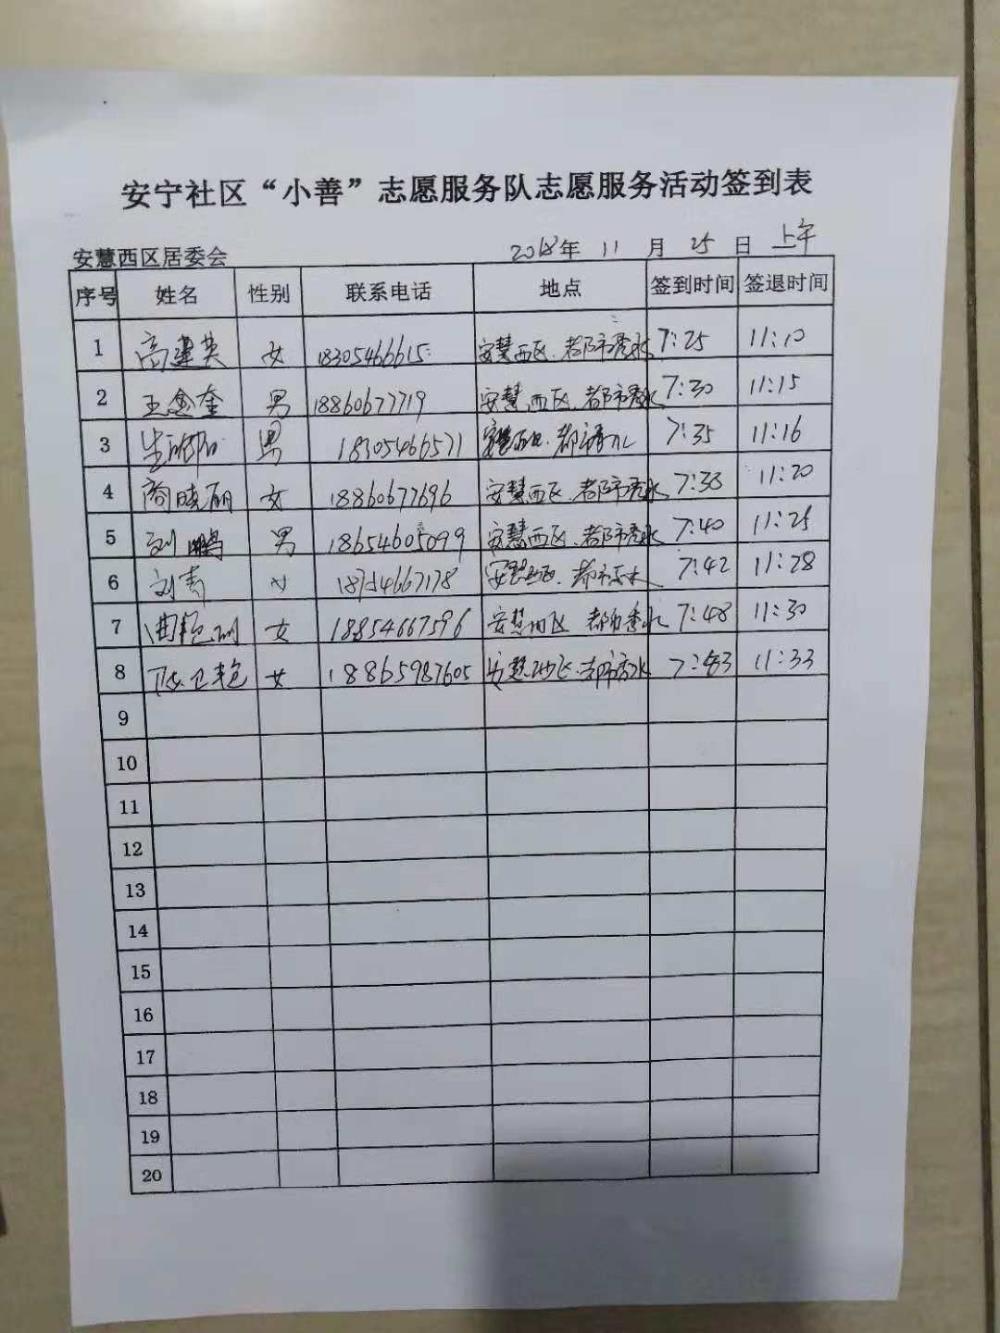 安宁社区“小善”志愿服务队志愿服务活动签到表
安慧西区居委会 2018年 11 月 25 日 上午
序号 姓名 性别 联系电话 地点 签到时间 签退时间
1 高建英 女 18305466615 安慧西区.都市秀水 7:25 11:10
2 王金奎 男 18860677719 安慧西区.都市秀水 7:30 11:15
3 男 18305466571 安慧西区.都市秀水 7:35 11:16
4 商晓丽 女 18860677696 安慧西区.都市秀水 7:38 11:20
5 刘鹏 男 18654605099 安慧西区.都市秀水 7:40 11:25
6 刘青 女 安慧西区.都市秀水 7:42 11:28
7 曲艳丽 女 18854667596 安慧西区 都市秀水 7:48 11:30
8 女 18865987605 安慧西区.都市秀水 11:33
9
10
11
12
13
14
15
16
17
18
19
20